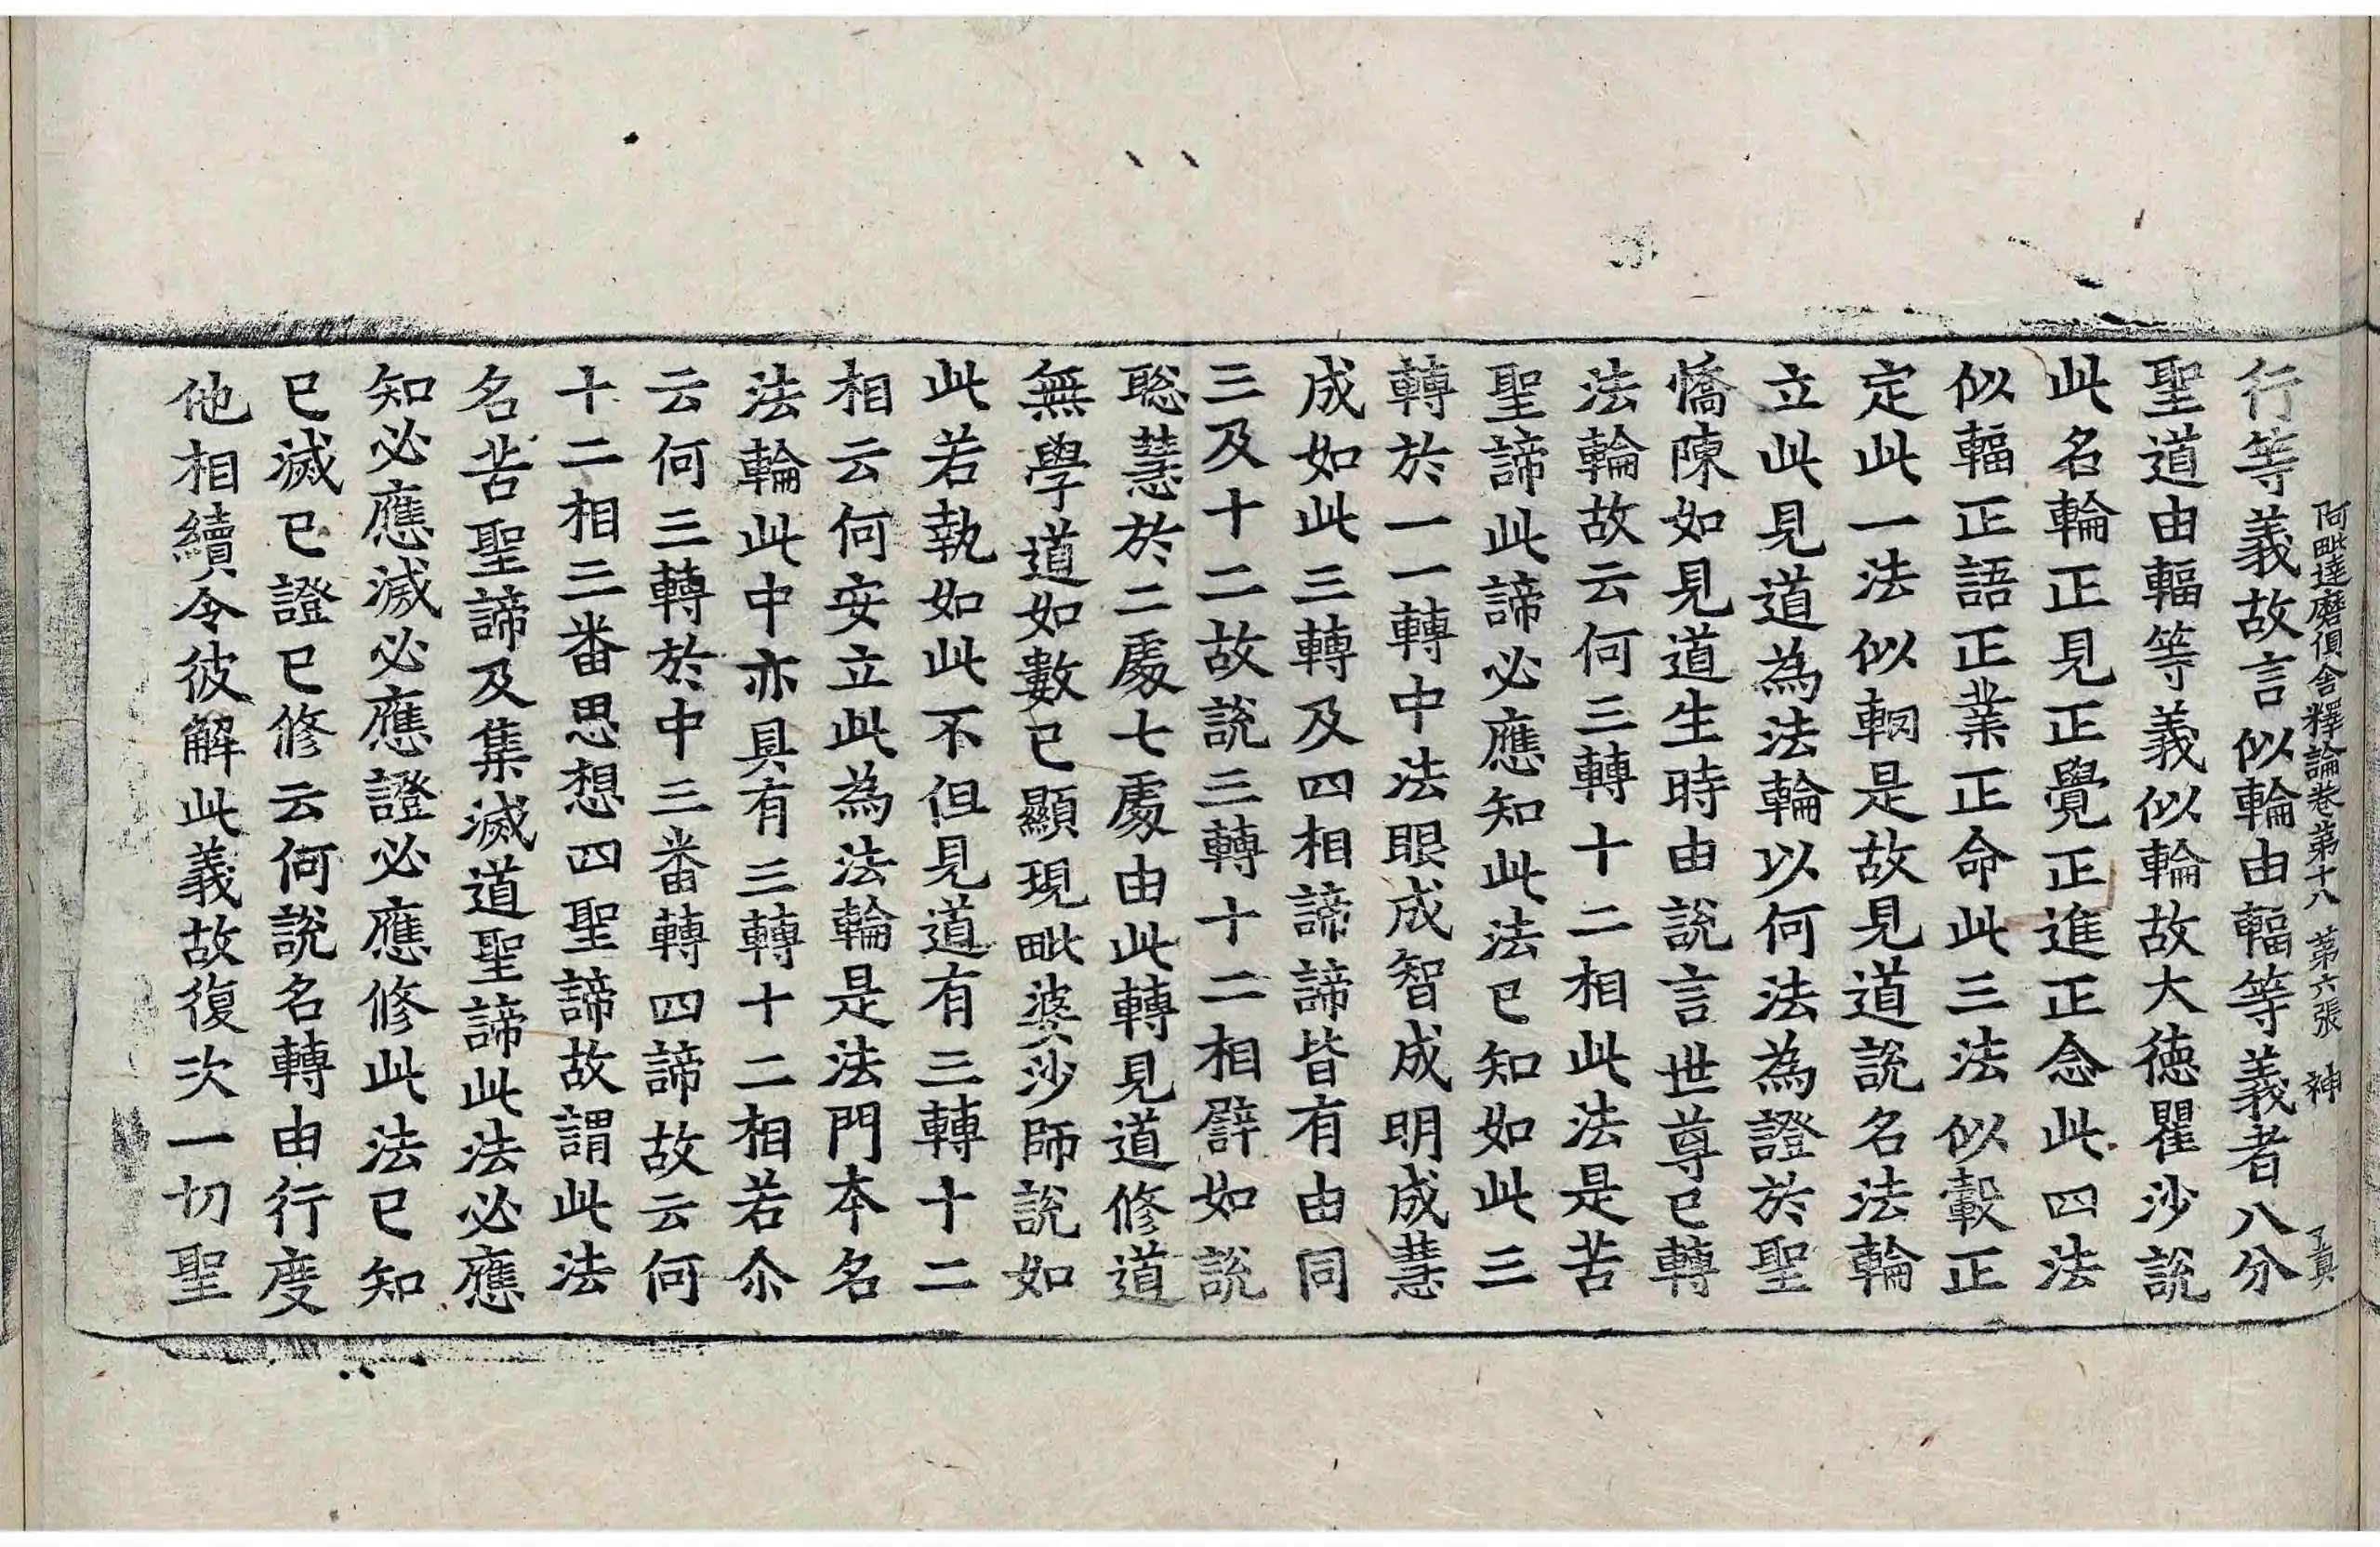 阿毗達磨俱舍釋論卷第十八 第六張 神 了真
行等義故言似輪由輻等義者八分
聖道由輻等義似輪故大德瞿沙說
此名輪正見正覺正進正念此四法
似輻正語正業正命此三法似轂正
定此一法似輞是故見道說名法輪
立此見道為法輪以何法為證於聖
憍陳如見道生時由說言世尊已轉
法輪故云何三轉十二相此法是苦
聖諦此諦必應知此法已知如此三
轉於一一轉中法眼成智成明成慧
成如此三轉及四相諦諦皆有由同
三及十二故說三轉十二相譬如說
聡慧於二處七處由此轉見道修道
無學道如數已顯現毗婆沙師說如
此若執如此不但見道有三轉十二
相云何安立此為法輪是法門本名
法輪此中亦具有三轉十二相若尒
云何三轉於中三番轉四諦故云何
十二相三番思想四聖諦故謂此法
名苦聖諦及集滅道聖諦此法必應
知必應滅必應證必應修此法已知
已滅已證已修云何說名轉由行度
他相續令彼解此義故復次一切聖